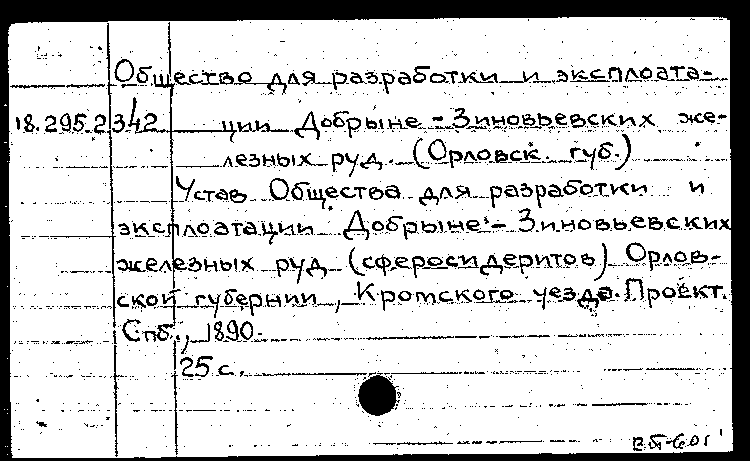 Общество для разработки и эксплоата-
18.295.2.342 ции Добрыне-Зиновьевских же-
лезных руд. (Орловск. губ.)
Устав Общества для разработки и
эксплоатации Добрыне-Зиновьевских
железных руд (сферосидеритов) Орлов-
ской губернии, Кромского уезда. Проект.
Спб., 1890.
25 с.